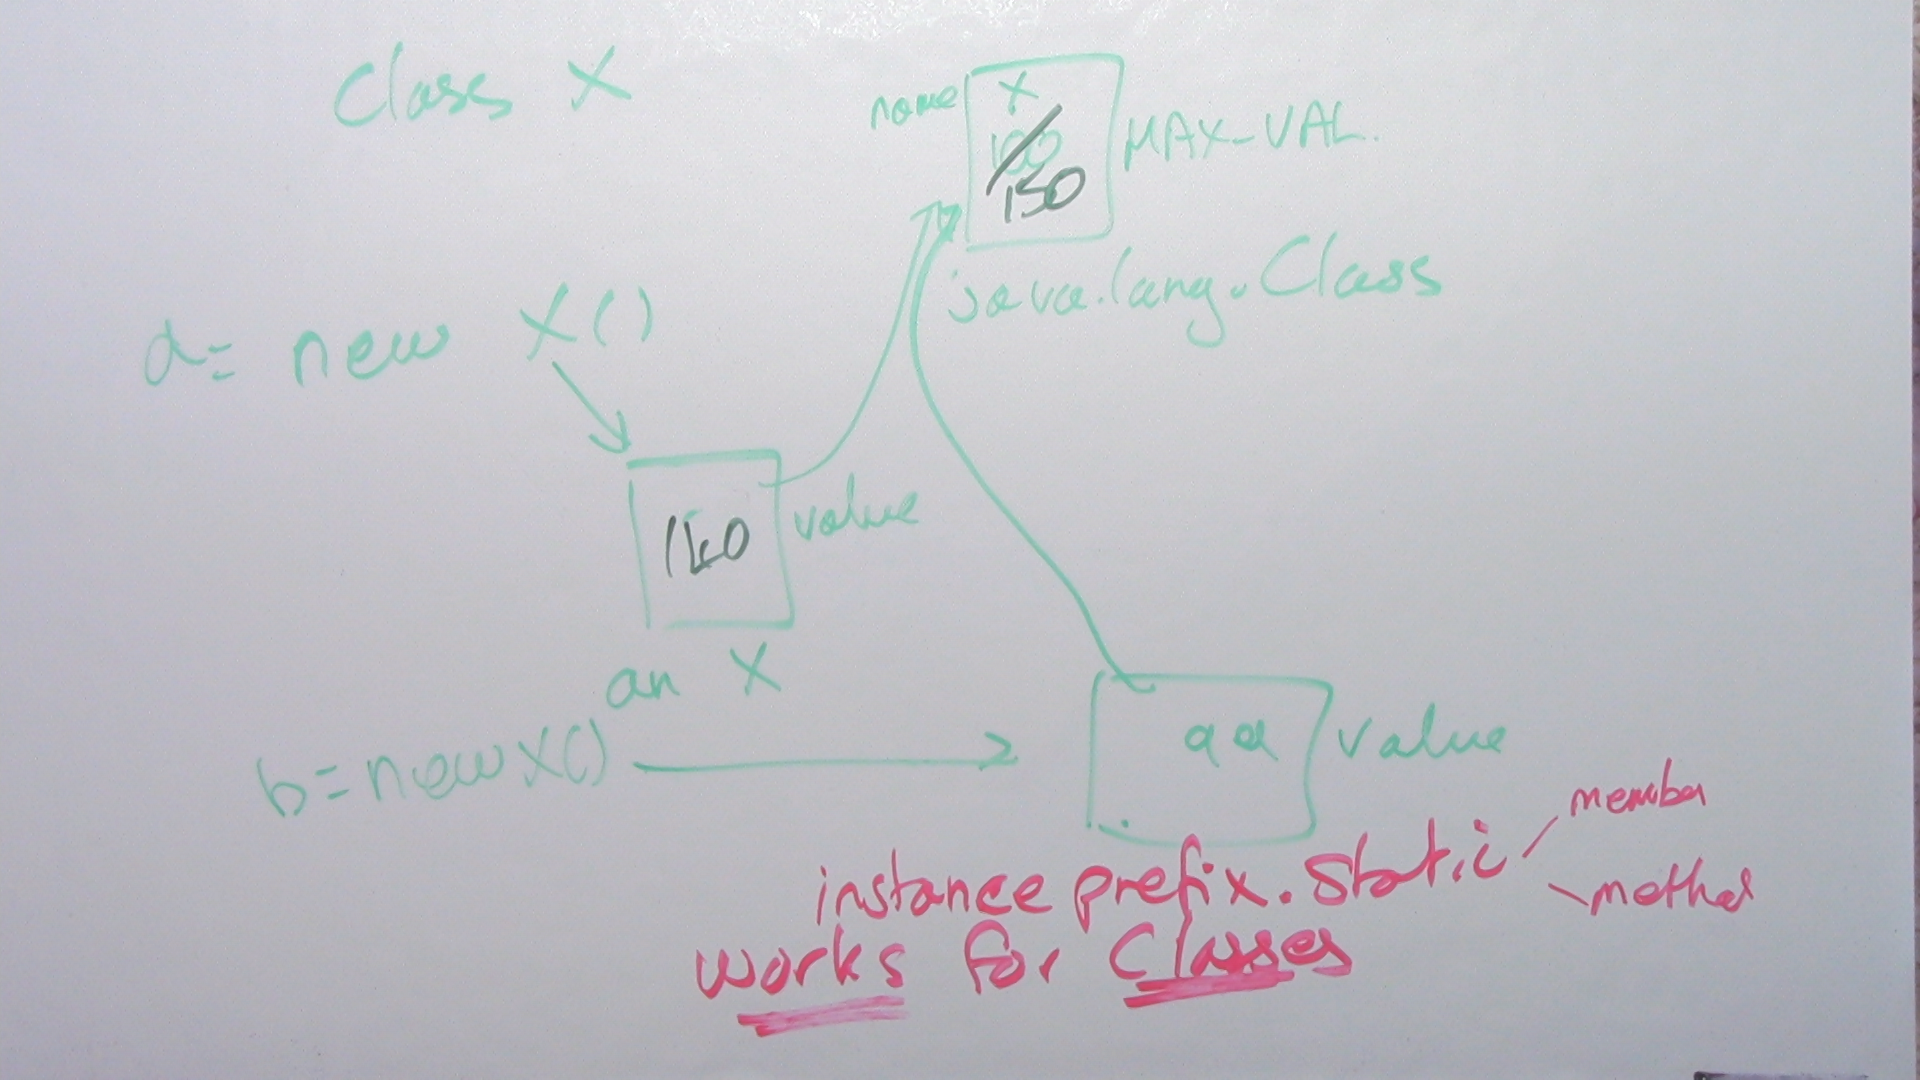 Class X
name X
100
150
MAX-VAL.
java.lang.Class
a= new X()
value
an X
b=new X()
99 value
instance prefix.static
member
method
works for Classes